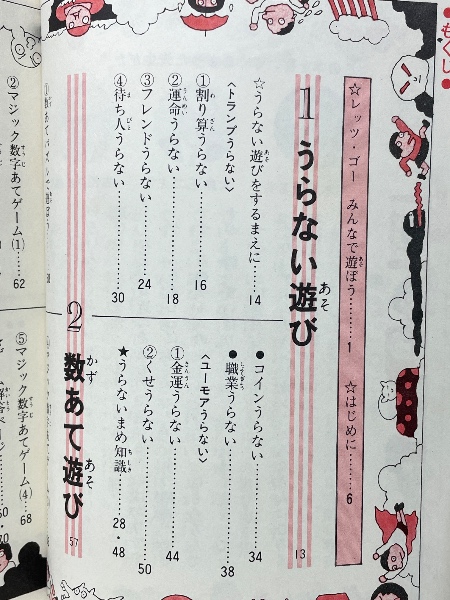 ●もくじ●
☆レッツ・ゴー みんなで遊ぼう………1 ☆はじめに……6
1 うらない遊び 13
☆うらない遊びをするまえに……14
〈トランプうらない〉
①割り算うらない……16
②運命うらない……18
③フレンドうらない……24
④待ち人うらない……30
●コインうらない……34
●職業うらない……38
〈ユーモアうらない〉
①金運うらない……44
②くせうらない……50
★うらないまめ知識……28・48
2 数あて遊び 57
②マジック数字あてゲーム(1)……62
⑤マジック数字あてゲーム(4)……68